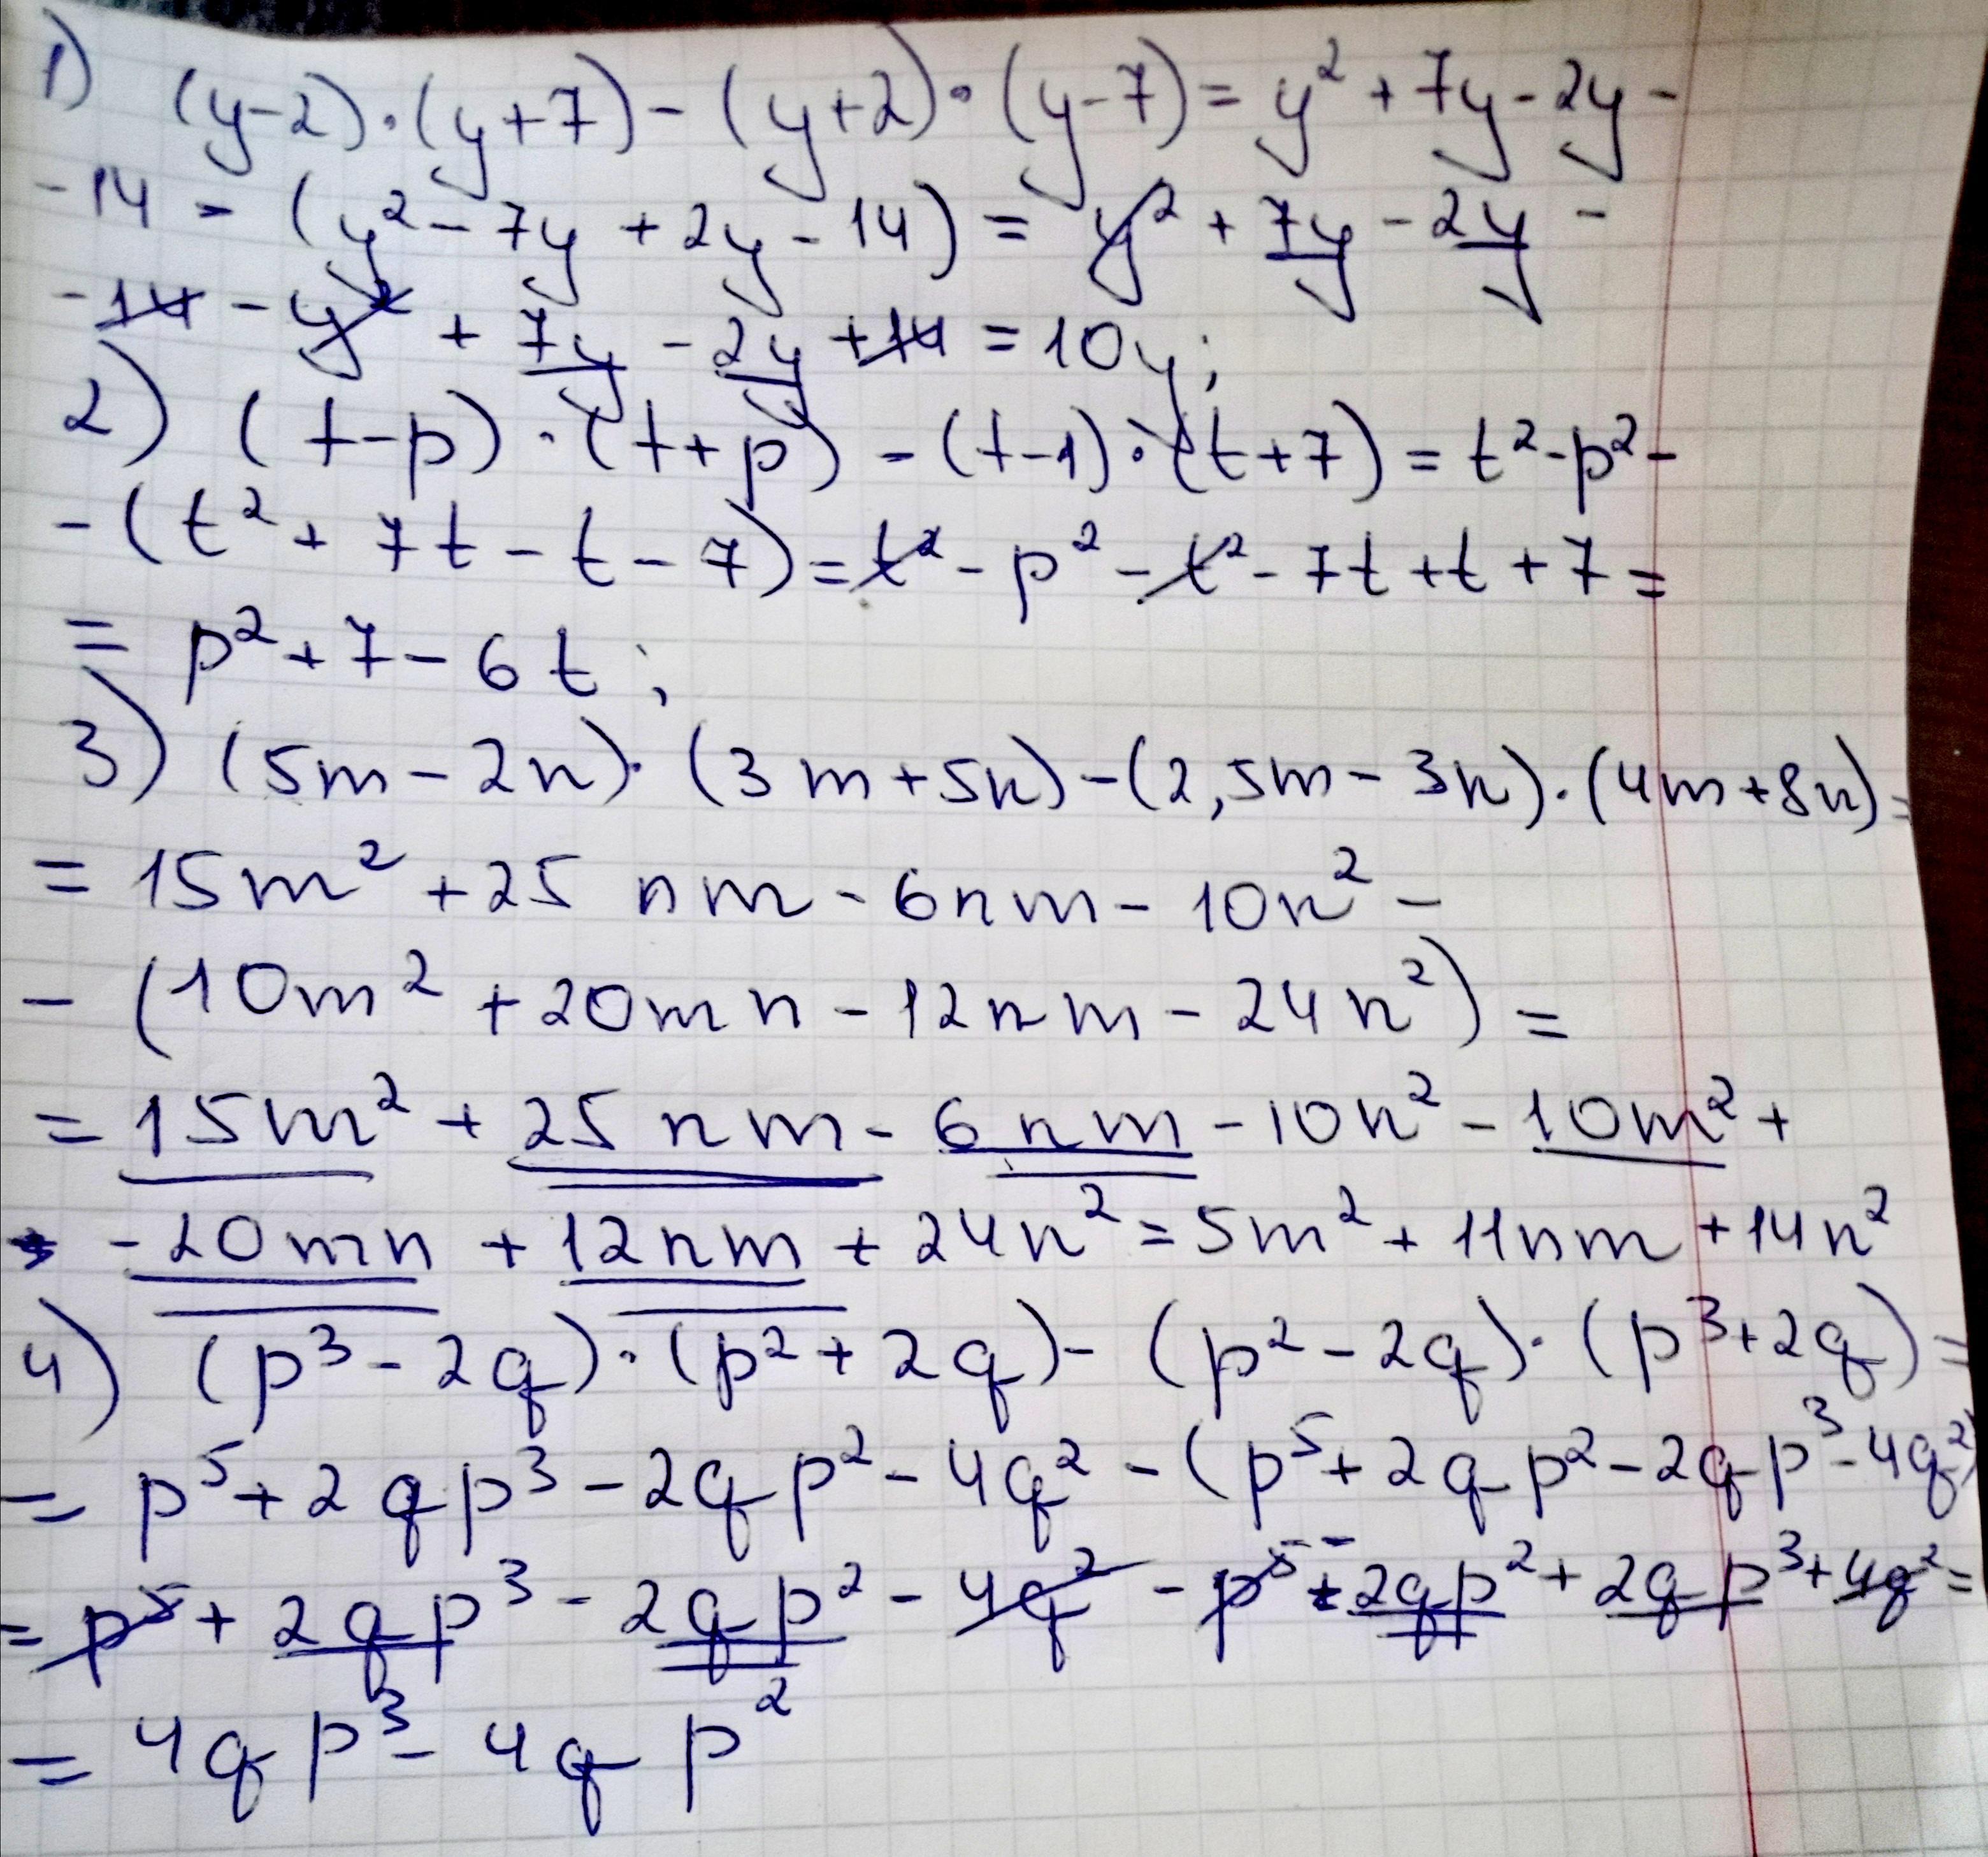 1) (y-2)·(y+7)-(y+2)·(y-7)=y²+7y-2y-
-14-(y²-7y+2y-14)=y²+7y-2y-
-14-y²+7y-2y+14=10y;
2) (t-p)·(t+p)-(t-1)·(t+7)=t²-p²-
-(t²+7t-t-7)=t²-p²-t²-7t+t+7=
=p²+7-6t;
3) (5m-2n)·(3m+5n)-(2,5m-3n)·(4m+8n)=
=15m²+25nm-6nm-10n²-
-(10m²+20mn-12nm-24n²)=
=15m²+25nm-6nm-10n²-10m²+
-20mn+12nm+24n²=5m²+11nm+14n²
4) (p³-2q)·(p²+2q)-(p²-2q)·(p³+2q)=
=p⁵+2qp³-2qp²-4q²-(p⁵+2qp²-2qp³-4q²)
=p⁵+2qp³-2qp²-4q²-p⁵-2qp²+2qp³+4q²=
=4qp³-4qp²